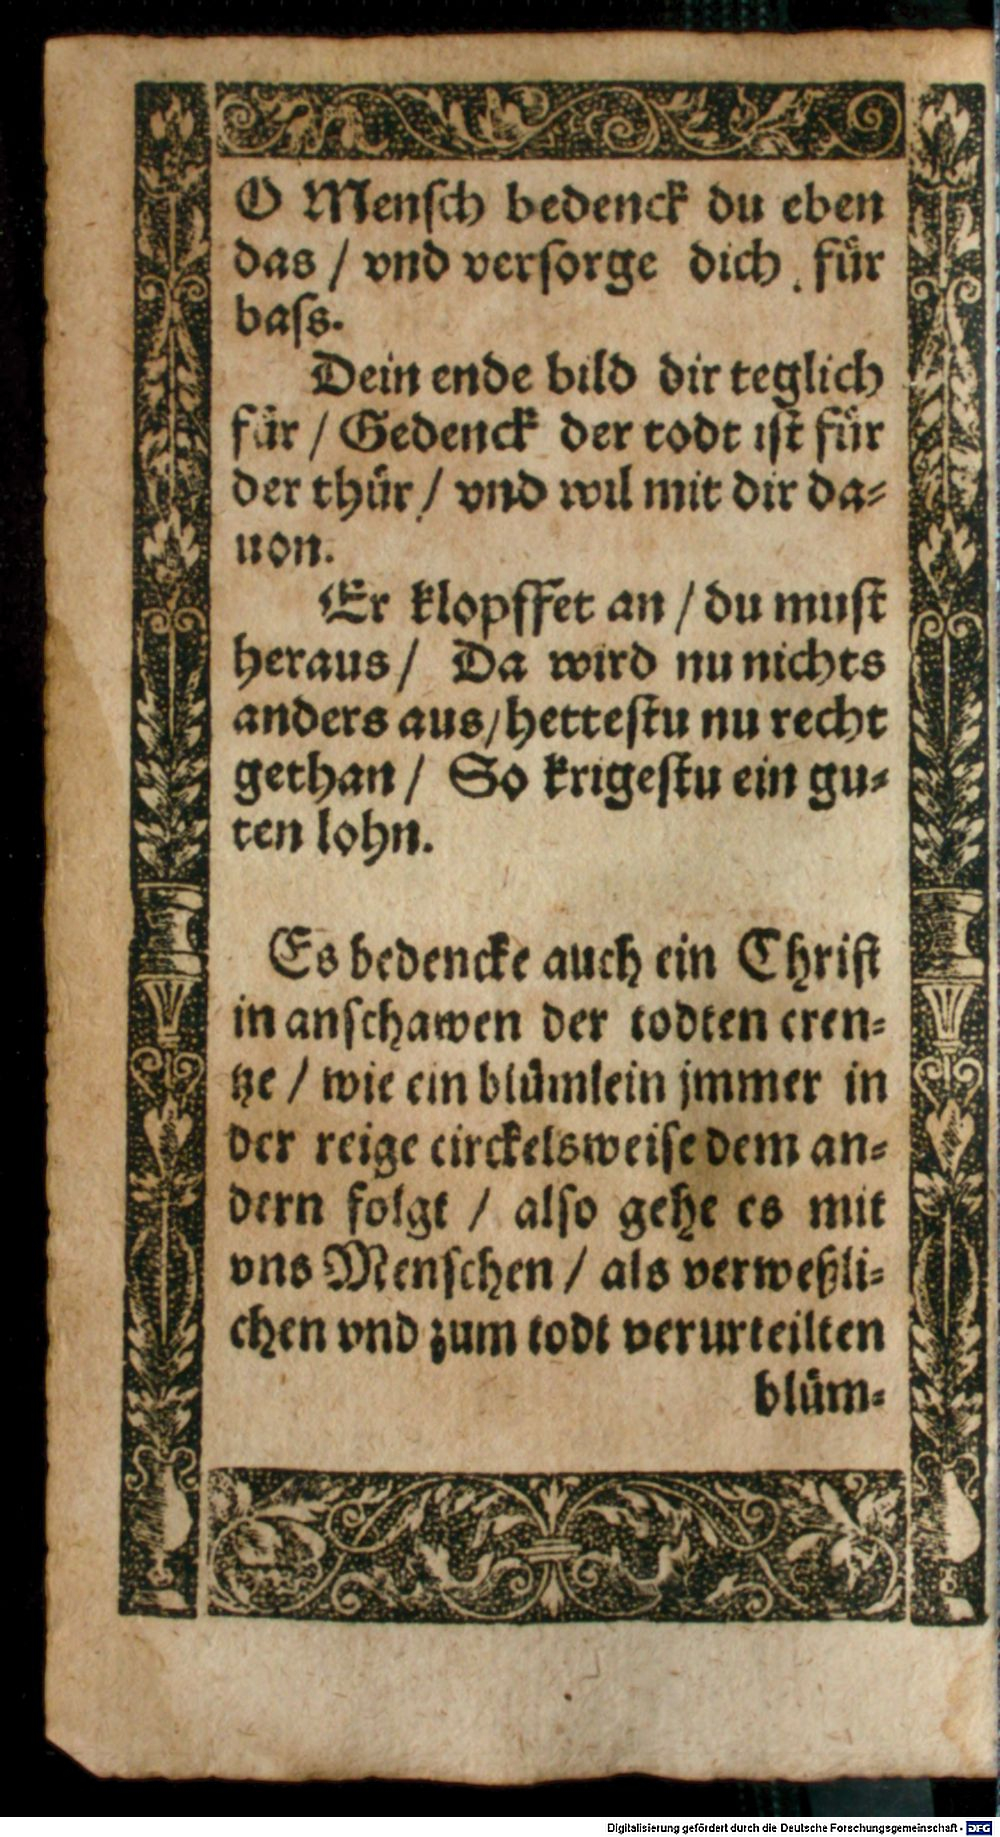 O Mensch bedenck du eben
das / vnd versorge dich für
bass.
Dein ende bild dir teglich
für / Gedenck der todt ist für
der thür / vnd wil mit dir da-
uon.
Er klopffet an / du must
heraus / Da wird nu nichts
anders aus / hettestu nu recht
gethan / So krigestu ein gu-
ten lohn.
Es bedencke auch ein Christ
in anschawen der todten cren-
tze / wie ein blümlein jmmer in
der reige circkelsweise dem an-
dern folgt / also gehe es mit
vns Menschen / als verweßli-
chen vnd zum todt verurteilten
blüm-
Digitalisierung gefördert durch die Deutsche Forschungsgemeinschaft - DFG